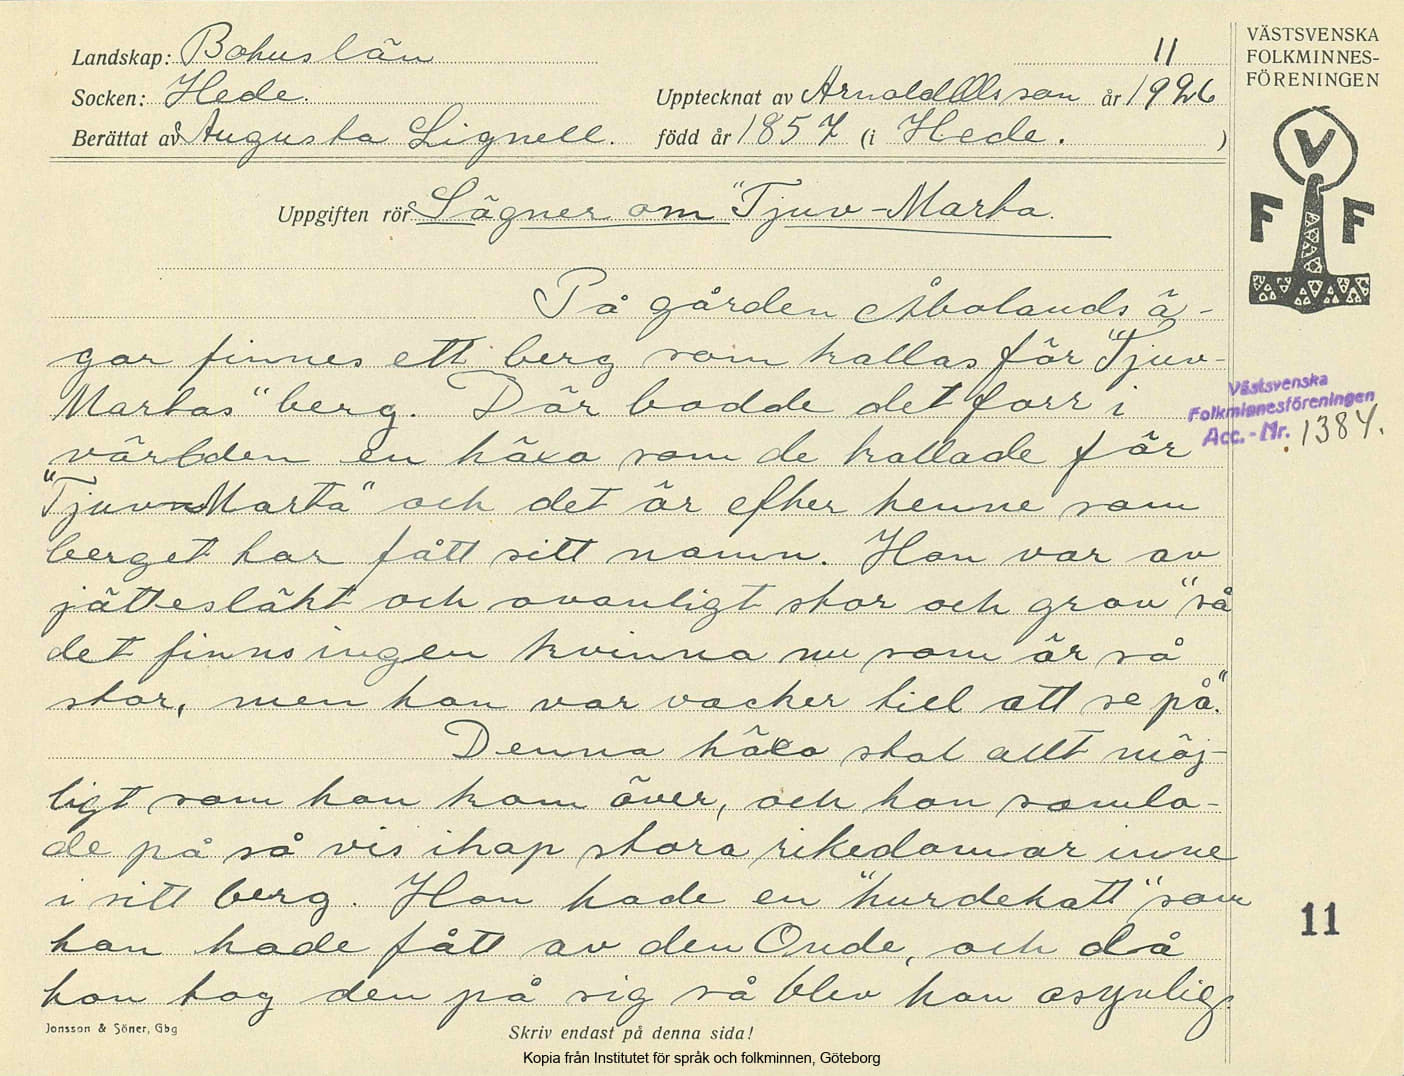 Landskap: Bohuslän
11
VÄSTSVENSKA
FOLKMINNES-
FÖRENINGEN
Socken: Hede.
Upptecknat av Arnold Olsson år 1926
Berättat av Augusta Lignell.
född år 1857 (i Hede. )
V
F F
Uppgiften rör Sägner om "Tjuv-Marta.
På gården Åbolands ä-
gor finnes ett berg som kallas för "Tjuv-
Martas" berg. Där bodde det förr i
världen en häxa som de kallade för
"Tjuv-Marta" och det är efter henne som
berget har fått sitt namn. Hon var av
jättesläkt och ovanligt stor och grov "så
det finns ingen kvinna nu som är så
stor, men hon var vacker till att se på."
Denna häxa stal allt möj-
ligt som hon kom över, och hon samla-
de på så vis ihop stora rikedomar inne
i sitt berg. Hon hade en "hurdehatt" som
hon hade fått av den Onde, och då
hon tog den på sig så blev hon osynlig.
Västsvenska
Folkminnesföreningen
Acc.-Nr. 1384.
11
Jonsson & Söner, Gbg
Skriv endast på denna sida!
Kopia från Institutet för språk och folkminnen, Göteborg